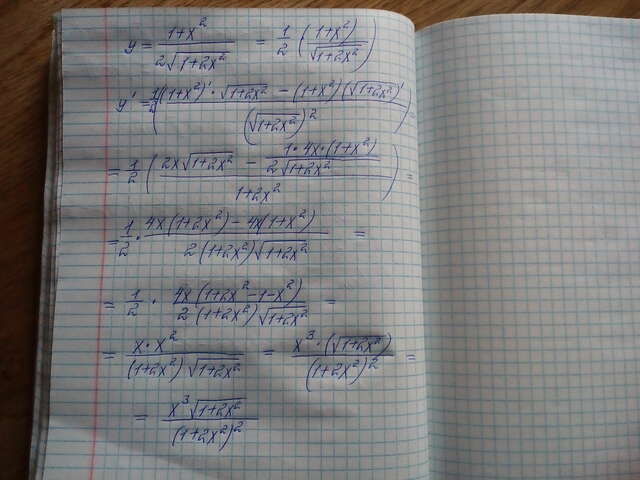 y = \frac{1+x^2}{2\sqrt{1+2x^2}} = \frac{1}{2} \left( \frac{1+x^2}{\sqrt{1+2x^2}} \right)
y' = \frac{1}{2} \left( \frac{(1+x^2)' \cdot \sqrt{1+2x^2} - (1+x^2)(\sqrt{1+2x^2})'}{(\sqrt{1+2x^2})^2} \right) =
= \frac{1}{2} \left( \frac{2x\sqrt{1+2x^2} - \frac{1 \cdot 4x \cdot (1+x^2)}{2\sqrt{1+2x^2}}}{1+2x^2} \right) =
= \frac{1}{2} \cdot \frac{4x(1+2x^2) - 4x(1+x^2)}{2(1+2x^2)\sqrt{1+2x^2}} =
= \frac{1}{2} \cdot \frac{4x(1+2x^2-1-x^2)}{2(1+2x^2)\sqrt{1+2x^2}} =
= \frac{x \cdot x^2}{(1+2x^2) \cdot \sqrt{1+2x^2}} = \frac{x^3 \cdot (\sqrt{1+2x^2})}{(1+2x^2)^2} =
= \frac{x^3 \sqrt{1+2x^2}}{(1+2x^2)^2}